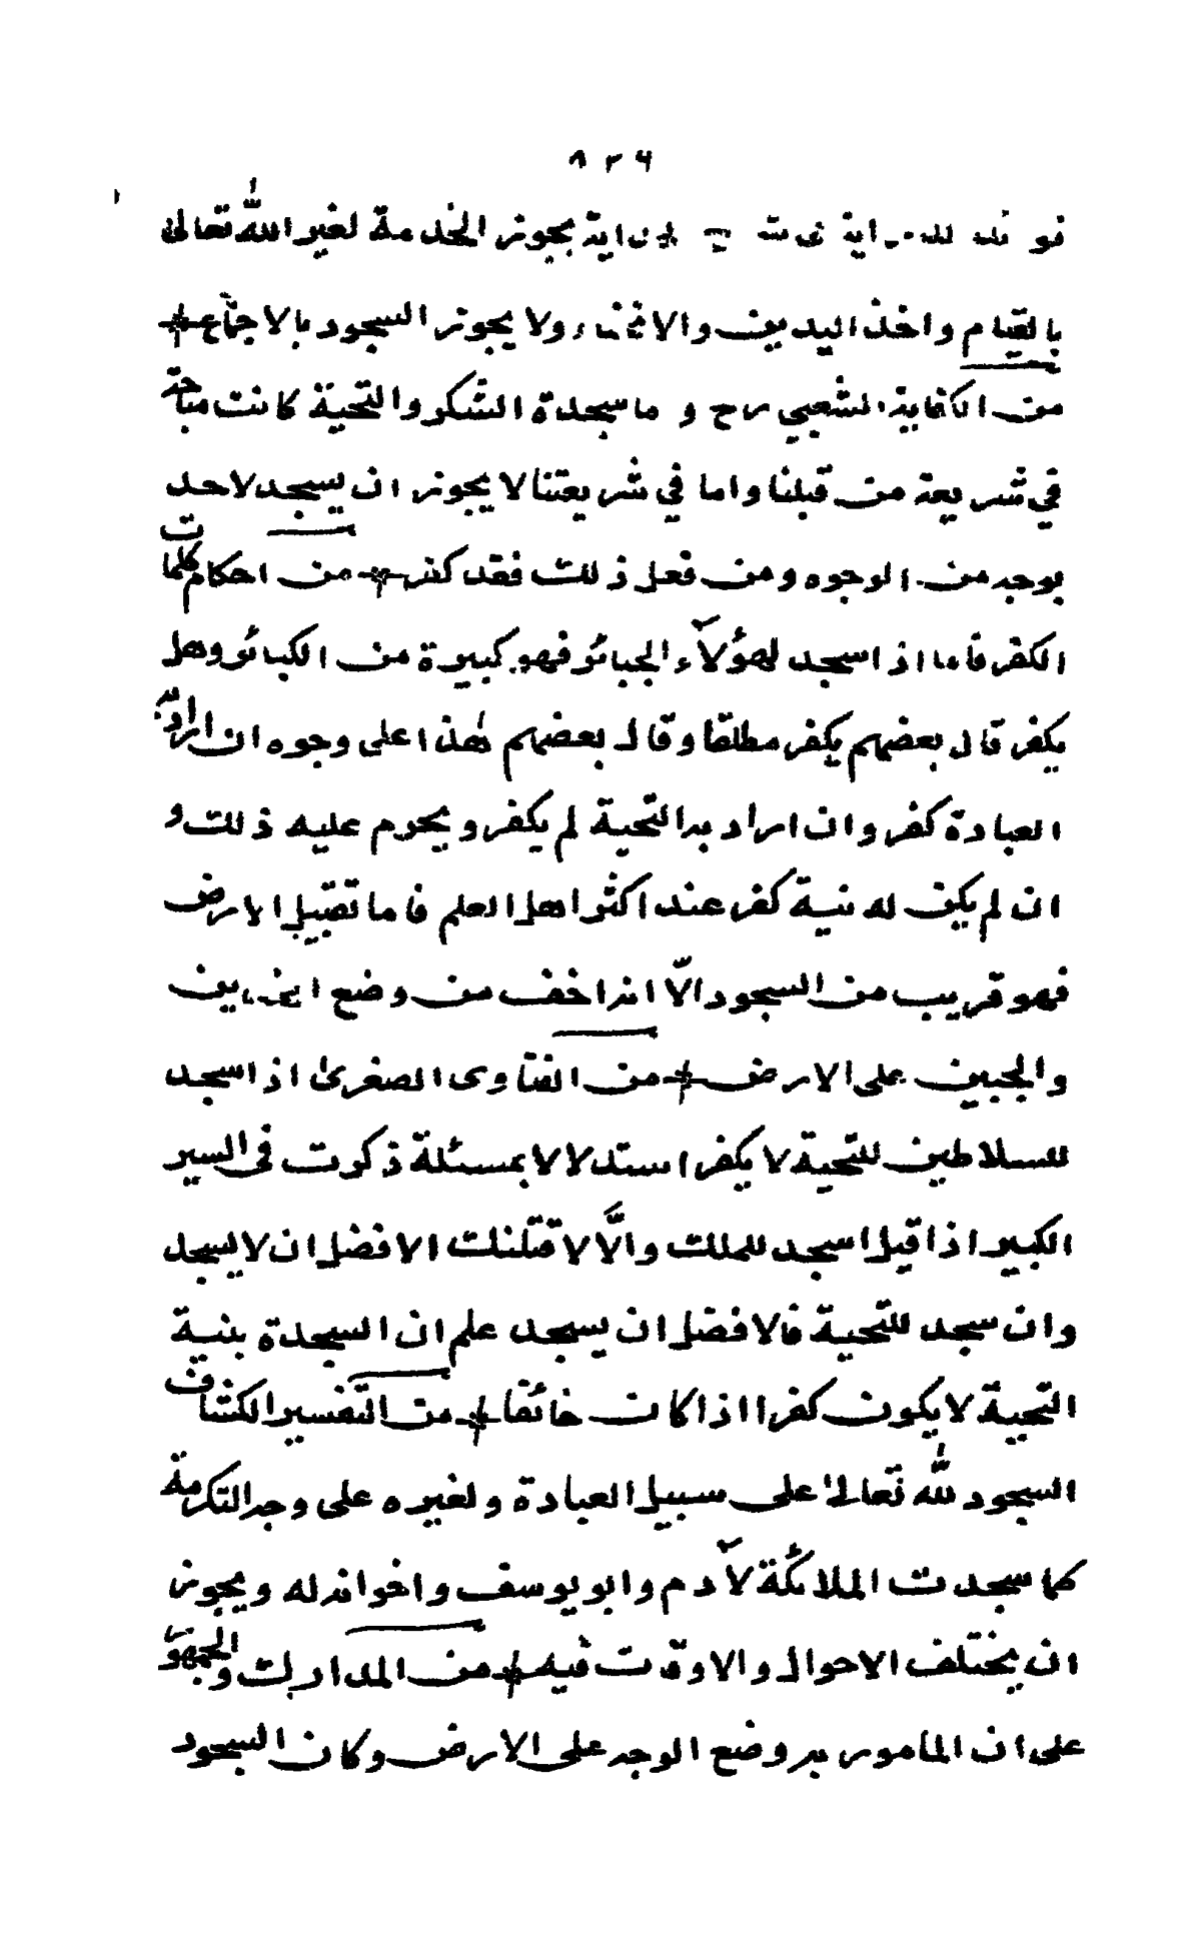 ٨٢٦
يجوز الخدمة لغير الله تعالى
بالقيام واخذ اليدين والانحناء ولا يجوز السجود بالاجماع
من الكفاية الشعبي رح و ما سجدة الشكر والتحية كانت مباحة
في شريعة من قبلنا واما في شريعتنا لا يجوز ان يسجد لاحد
بوجه من الوجوه ومن فعل ذلك فقد كفر من احكام كلمات
الكفر فاما اذا سجد لهؤلآء الجبائر فهو كبيرة من الكبائر وهل
يكفر قال بعضهم يكفر مطلقا وقال بعضهم هذا على وجوه ان اراد به
العبادة كفر وان اراد به التحية لم يكفر ويحرم عليه ذلك و
ان لم يكن له نية كفر عند اكثر اهل العلم فاما تقبيل الارض
فهو قريب من السجود الّا انه اخف من وضع الخدين
والجبين على الارض من الفتاوى الصغرى اذا سجد
للسلاطين للتحية لا يكفر استدلالا بمسئلة ذكرت فى السير
الكبير اذا قيل اسجد للملك والّا لا قتلنك الافضل ان لا يسجد
وان سجد للتحية فالافضل ان يسجد علم ان السجدة بنية
التحية لا يكون كفرا اذا كان خائفا من التفسير الكشاف
السجود لله تعالى على سبيل العبادة ولغيره على وجه التكرمة
كما سجدت الملائكة لآدم وابو يوسف واخوانه له ويجوز
ان يختلف الاحوال والاوقات فيه من المدارك والجمهور
على ان المأمور به وضع الوجه على الارض وكان السجود